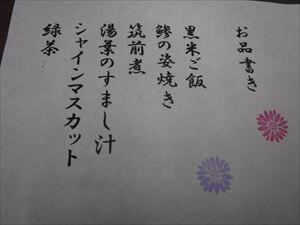 お品書き
黒米ご飯
鯵の姿焼き
筑前煮
湯葉のすまし汁
シャインマスカット
緑茶